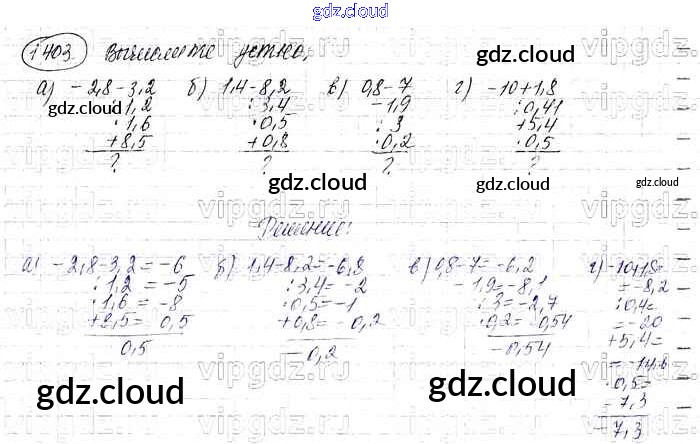 gdz.cloud
1403. Вычислите устно,
а) -2,8-3,2 б) 1,4-8,2 в) 0,8-7 г) -10+1,8
:1,2 :3,4 -1,9 :0,41
·1,6 ·0,5 :3 +5,4
+8,5 +0,8 ·0,2 ·0,5
? ? ? ?
Решение:
а) -2,8-3,2=-6 б) 1,4-8,2=-6,8 в) 0,8-7=-6,2 г) -10+1,8=
:1,2=-5 :3,4=-2 -1,9=-8,1 =-8,2
·1,6=-8 ·0,5=-1 :3=-2,7 :0,4=
+8,5=0,5 +0,8=-0,2 ·0,2=-0,54 =-20
0,5 -0,2 -0,54 +5,4=
=-14,6
·0,5=
-7,3
-7,3
gdz.cloud
gdz.cloud
gdz.cloud
gdz.cloud
gdz.cloud
gdz.cloud
gdz.cloud
gdz.cloud
gdz.cloud